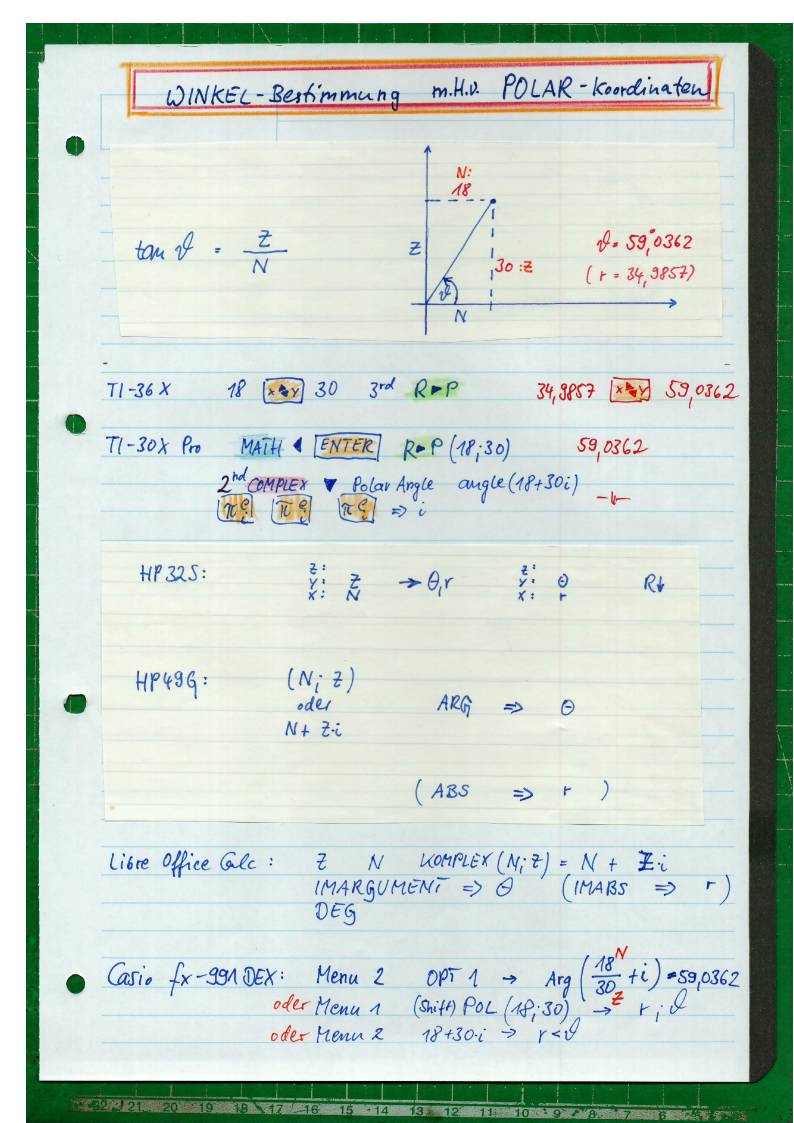 WINKEL-Bestimmung m.H.v. POLAR-Koordinaten
N:
18
tan ϑ = Z / N
Z
30 :Z
ϑ
N
ϑ = 59,°0362
( r = 34,9857)
TI-36X 18 x▶◀y 30 3rd R▶P 34,9857 x▶◀y 59,0362
TI-30X Pro MATH ◀ ENTER R▶P (18;30) 59,0362
2nd COMPLEX ▼ Polar Angle angle(18+30i) -"-
π e i π e i π e i ⇒ i
HP32S: Z: Z:
Y: Z → θ,r Y: θ R↓
X: N X: r
HP49G: (N; Z)
oder ARG ⇒ θ
N + Z·i
( ABS ⇒ r )
Libre Office Calc : Z N KOMPLEX (N; Z) = N + Z·i
IMARGUMENT ⇒ θ (IMABS ⇒ r )
DEG
Casio fx-991DEX: Menu 2 OPT 1 → Arg ( 18 N / 30 Z + i) = 59,0362
oder Menu 1 (Shift) POL (18;30) → r ; ϑ
oder Menu 2 18+30·i → r<ϑ
22 21 20 19 18 17 16 15 14 13 12 11 10 9 8 7 6